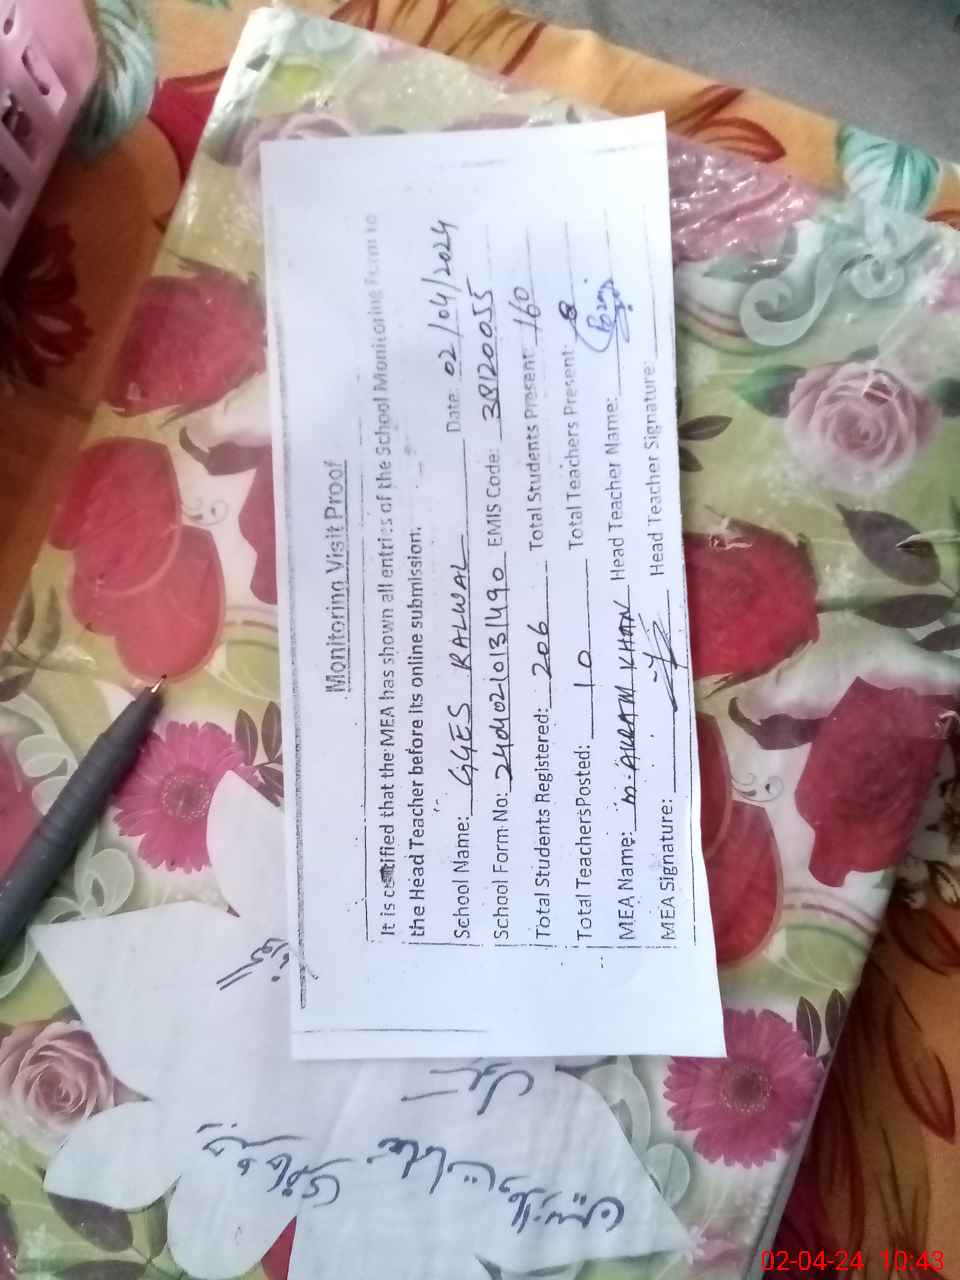 Monitoring Visit Proof
It is certified that the MEA has shown all entries of the School Monitoring Form to
the Head Teacher before its online submission.
School Name: GGES RALWAL Date: 02/04/2024
School Form No: EMIS Code: 38120055
Total Students Registered: 206 Total Students Present: 160
Total TeachersPosted: 10 Total Teachers Present: 8
MEA Name: M. AKRAM KHAN Head Teacher Name:
MEA Signature: Head Teacher Signature:
02-04-24 10:43